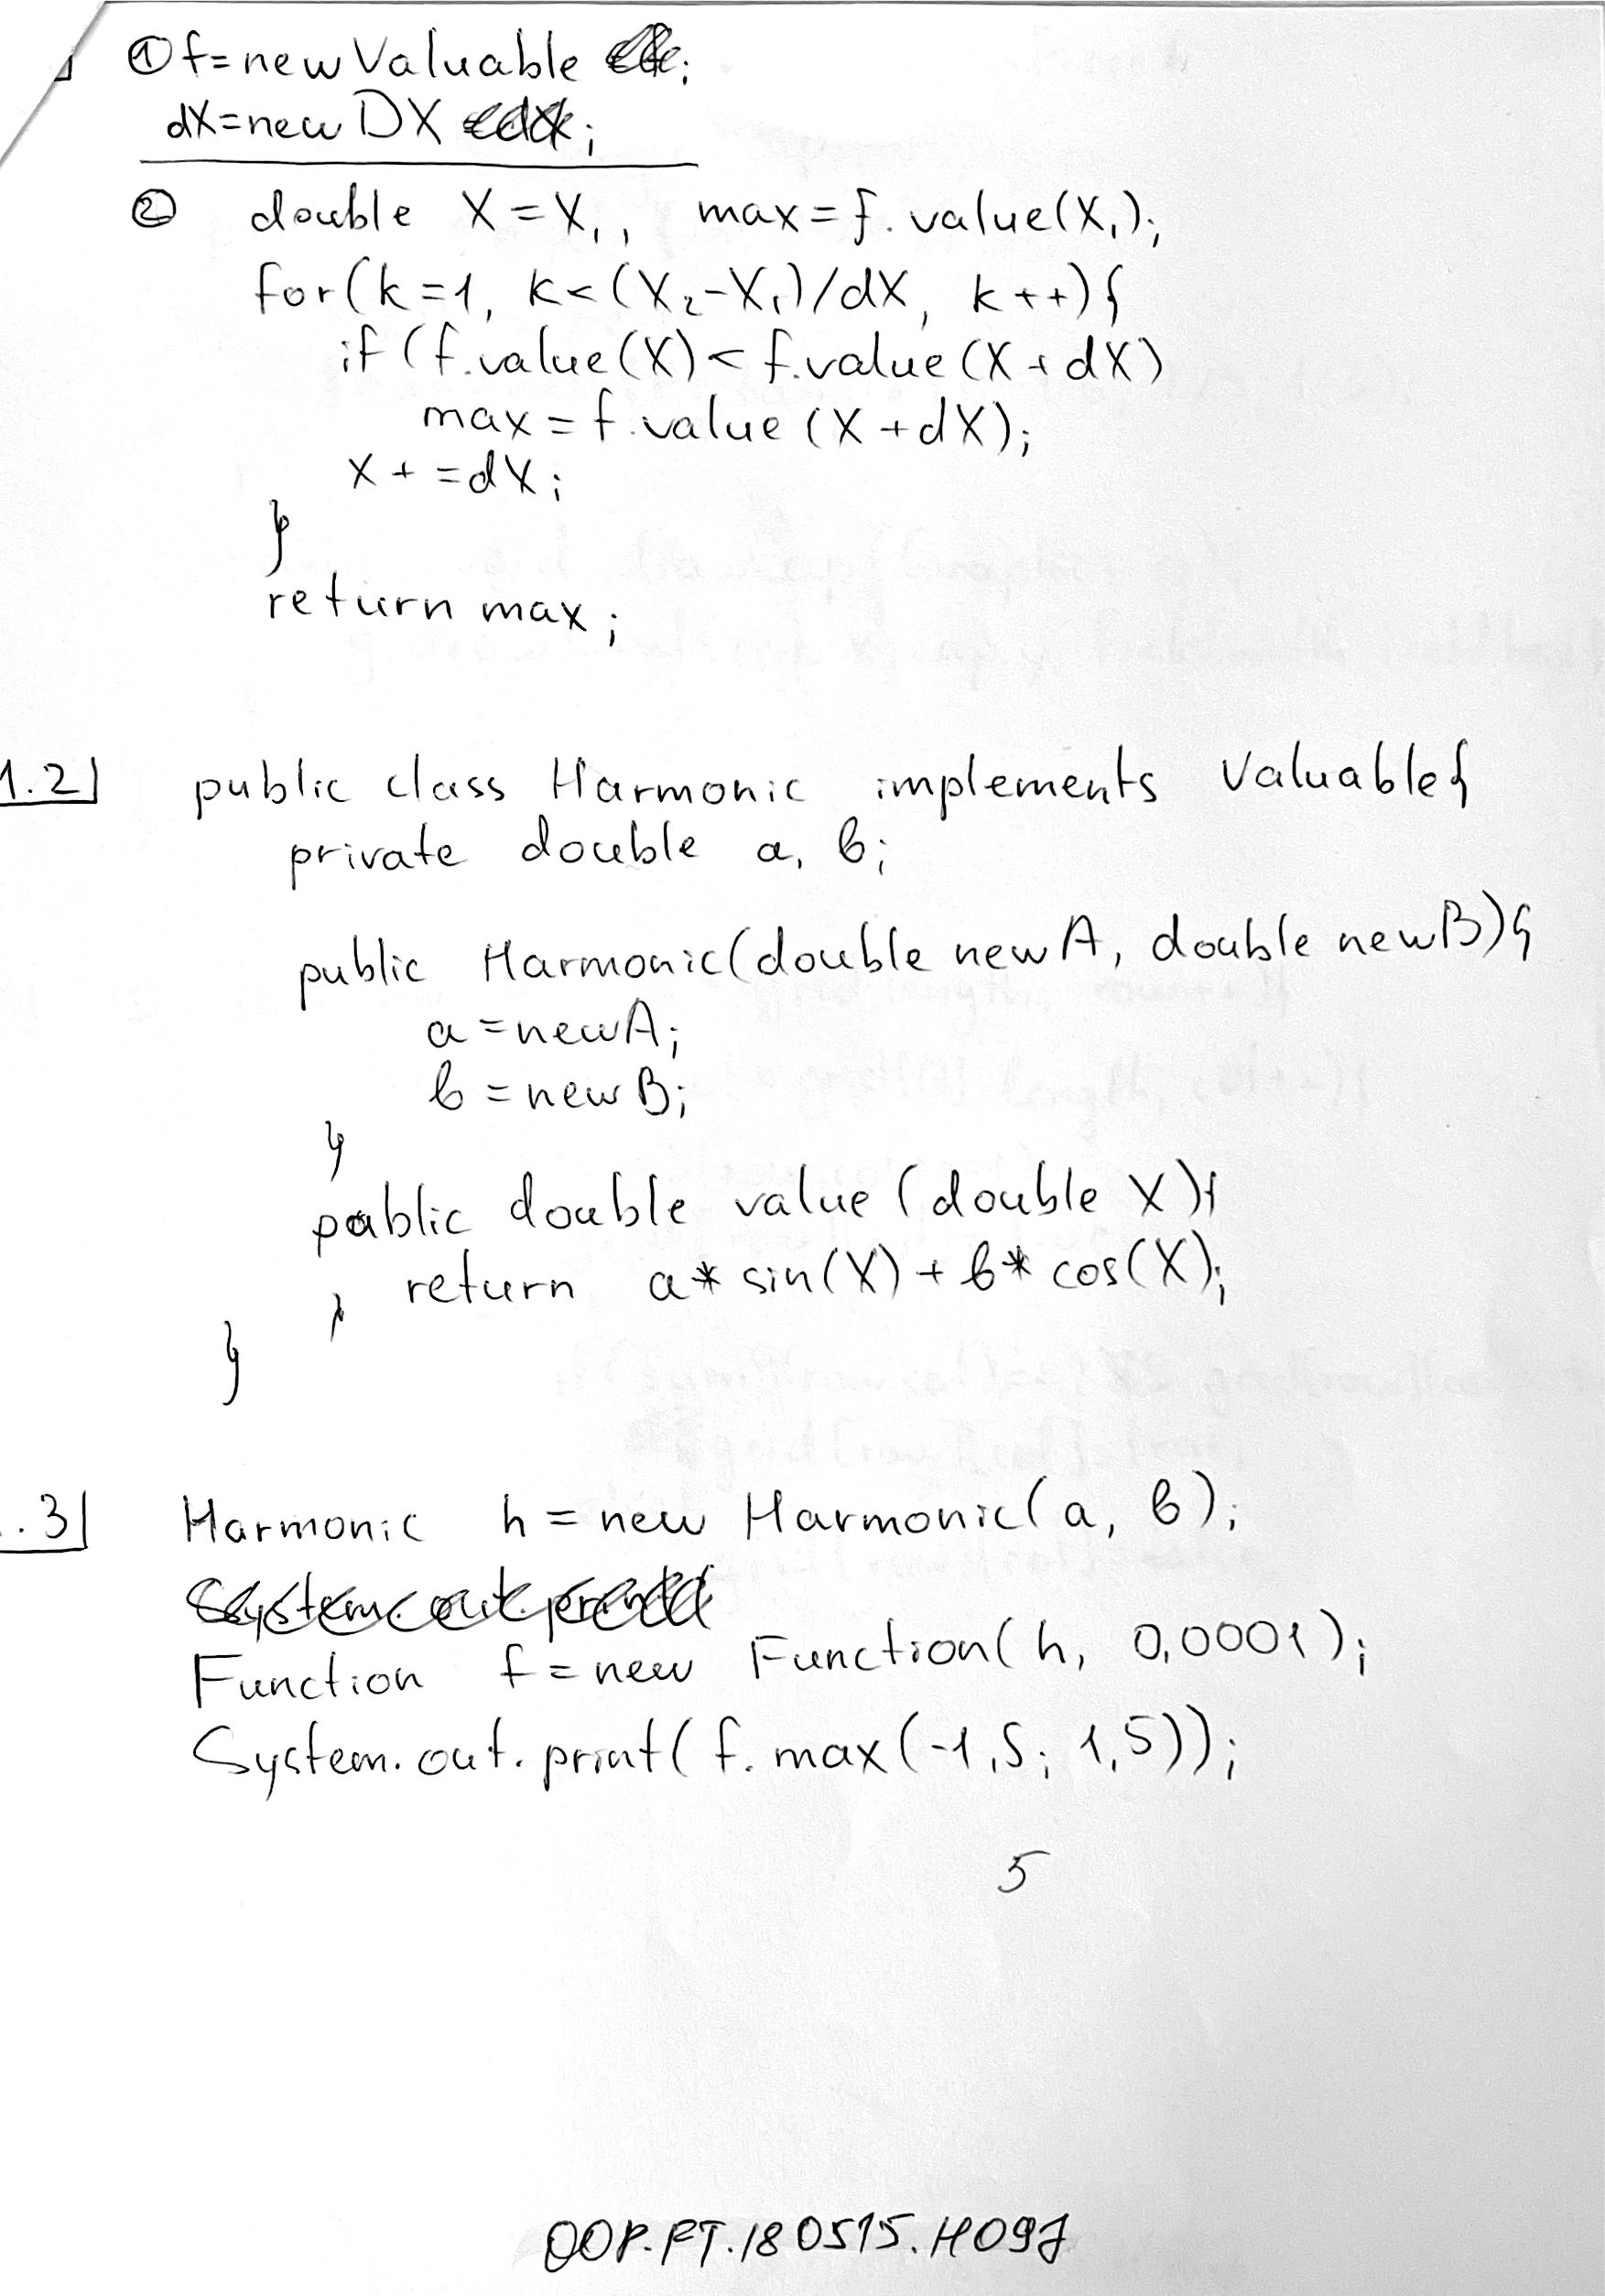 ① f=new Valuable ;
dX=new DX ;
② double X=X₁, max=f.value(X₁);
for(k=1, k<(X₂-X₁)/dX, k++){
if (f.value(X)<f.value(X+dX)
max=f.value(X+dX);
X+=dX;
}
return max;
1.2 public class Harmonic implements Valuable{
private double a, b;
public Harmonic(double newA, double newB){
a=newA;
b=newB;
}
public double value(double X){
return a*sin(X)+b*cos(X);
}
}
.3 Harmonic h=new Harmonic(a, b);
System.out.print
Function f=new Function(h, 0,0001);
System.out.print(f.max(-1,5; 1,5));
5
OOP.PT.180515.H097